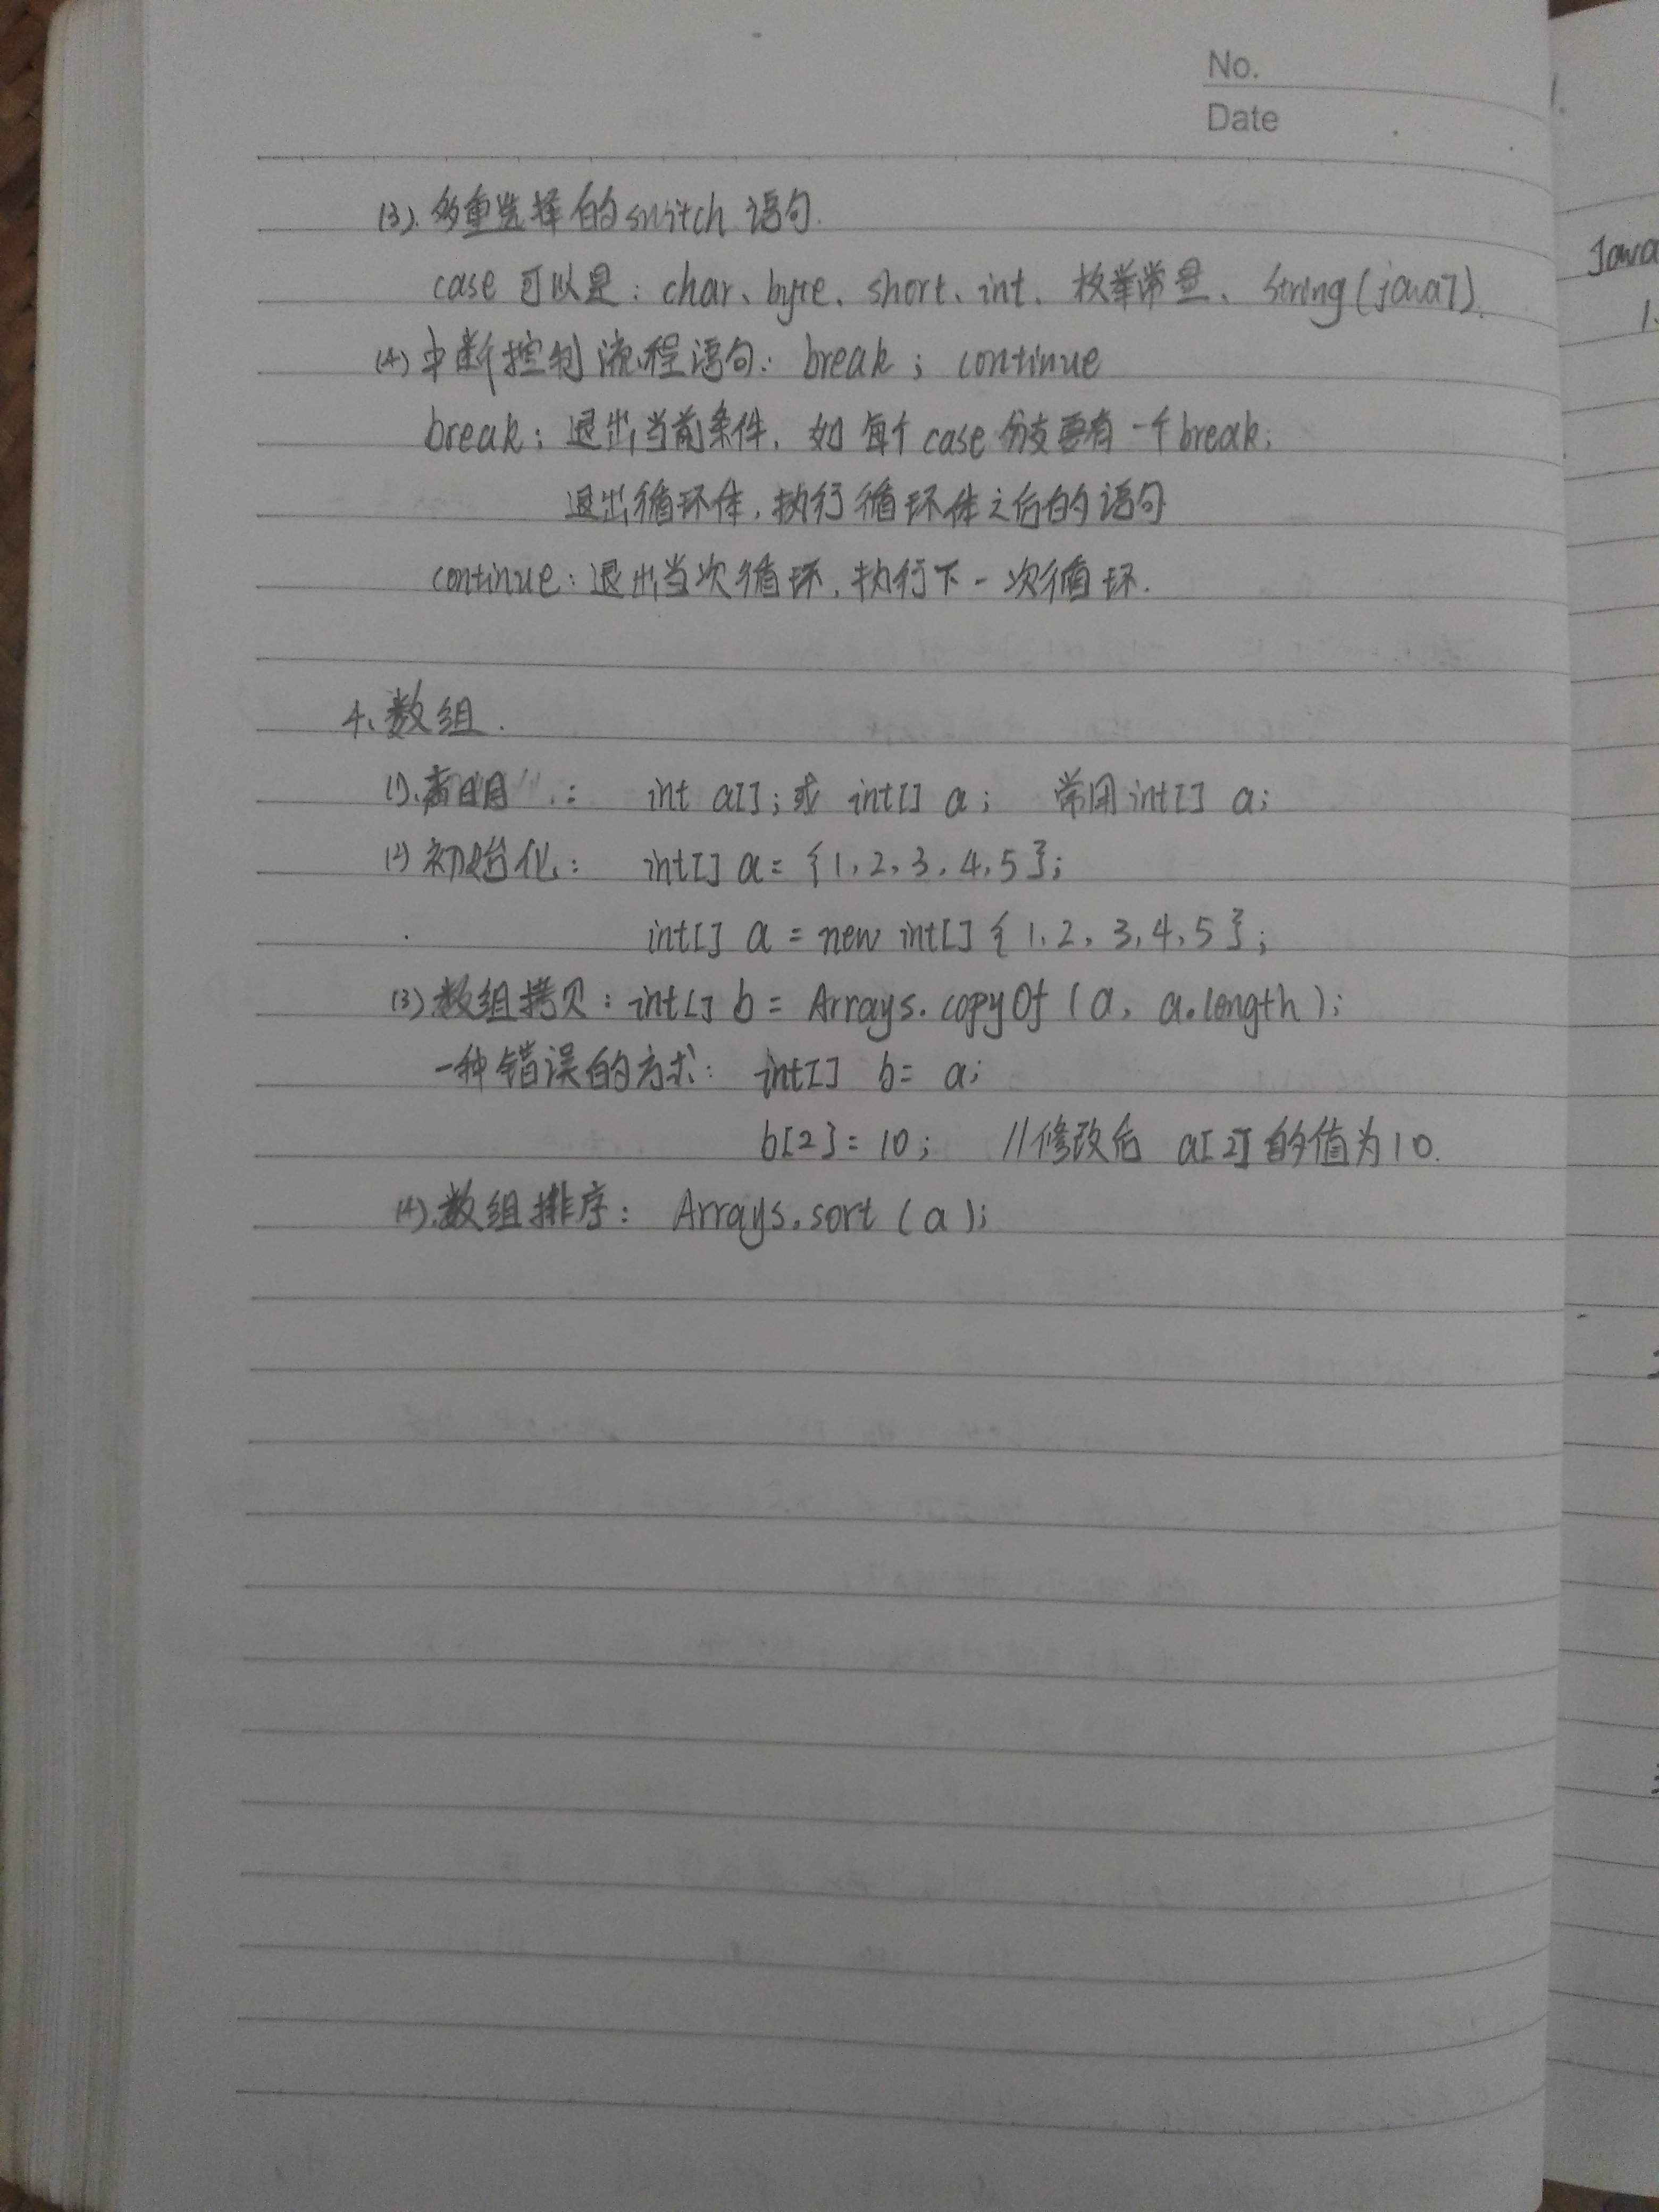 No.
Date
(3). 多重选择的switch 语句.
case 可以是: char、byte、short、int、枚举常量、String(java7).
(4) 中断控制流程语句: break; continue
break: 退出当前条件, 如 每个case 分支要有一个break;
退出循环体, 执行循环体之后的语句
continue: 退出当次循环, 执行下一次循环.
4、数组.
(1).声明: int a[]; 或 int[] a; 常用int[] a;
(2) 初始化: int[] a = {1, 2, 3, 4, 5};
int[] a = new int[] {1, 2, 3, 4, 5};
(3) 数组拷贝: int[] b = Arrays.copyOf (a, a.length);
一种错误的方式: int[] b = a;
b[2] = 10; //修改后 a[2] 的值为10.
(4).数组排序: Arrays.sort (a);
1.
Java
1.